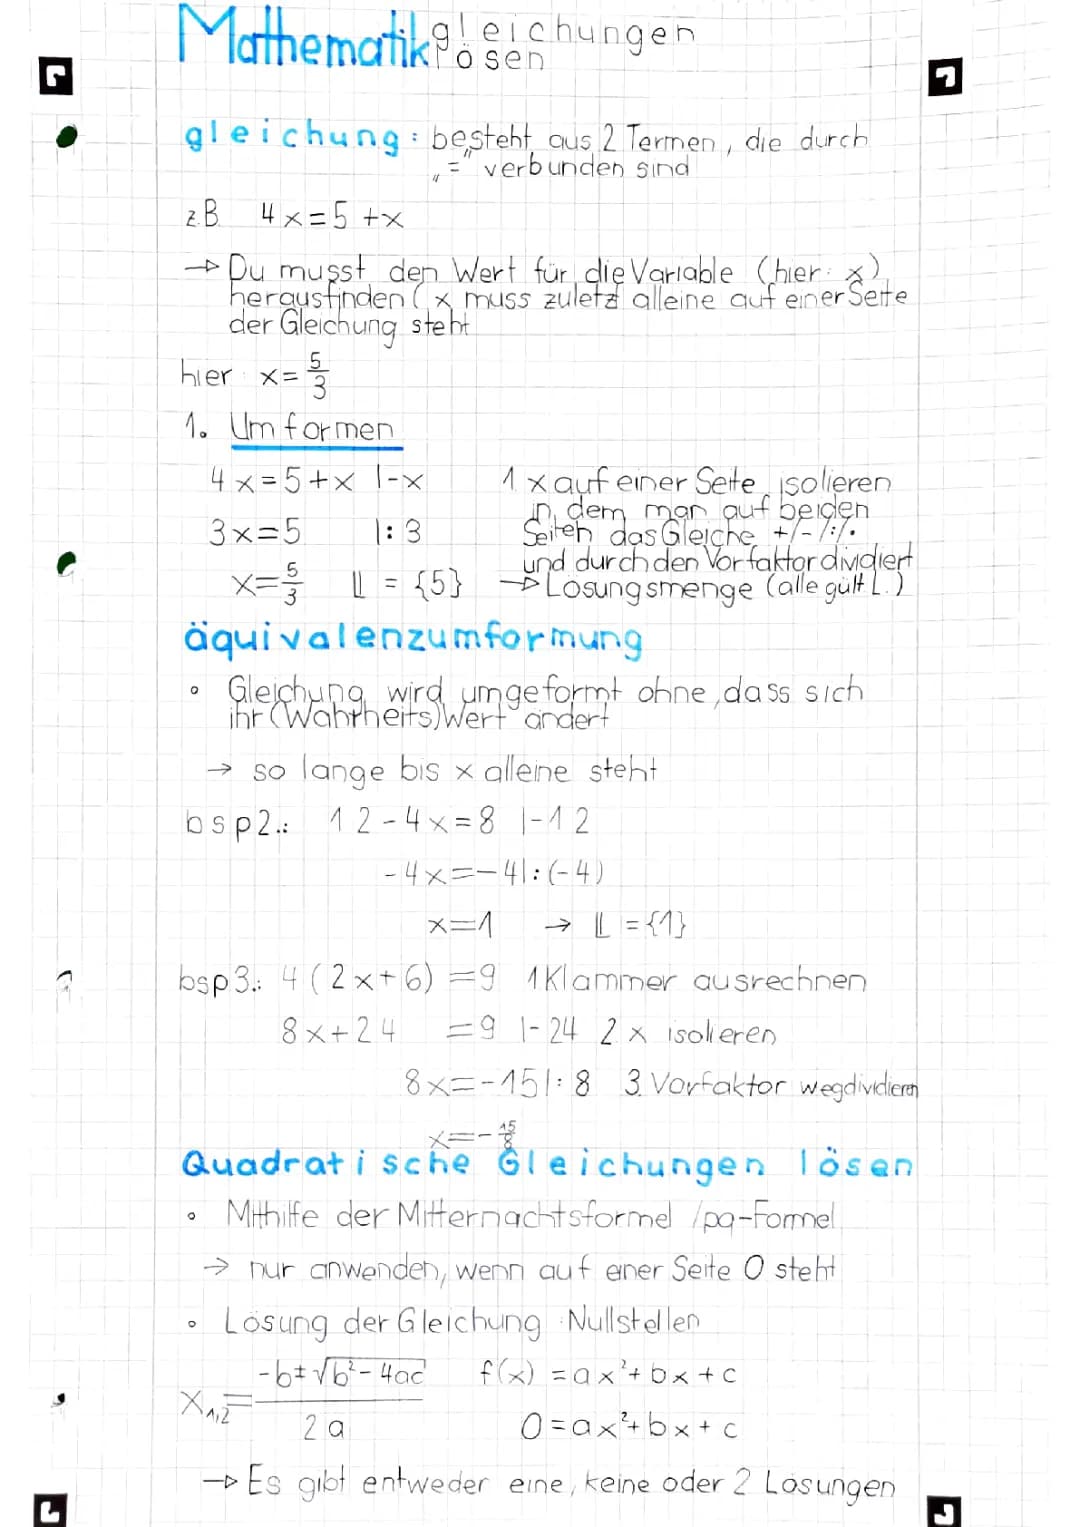 Mathematik gleichungen
lösen
gleichung: besteht aus 2 Termen, die durch
„=" verbunden sind
z.B. 4x=5+x
→ Du musst den Wert für die Variable (hier: x)
herausfinden (x muss zuletzt alleine auf einer Seite
der Gleichung steht
hier: x=5/3
1. Umformen
4x=5+x |-x 1 x auf einer Seite isolieren
in dem man auf beiden
3x=5 |:3 Seiten das Gleiche +/-/:/·
und durch den Vorfaktor dividiert
x=5/3 𝕃 = {5} → Lösungsmenge (alle gült L.)
äquivalenzumformung
• Gleichung wird umgeformt ohne, dass sich
ihr (Wahrheits)Wert ändert
→ so lange bis x alleine steht
bsp2.: 12-4x=8 |-12
-4x=-4|:(-4)
x=1 → 𝕃={1}
bsp3.: 4(2x+6)=9 1 Klammer ausrechnen
8x+24 =9 |-24 2. x isolieren
8x=-15|:8 3. Vorfaktor wegdividieren
x=-15/8
Quadratische Gleichungen lösen
• Mithilfe der Mitternachtsformel /pq-Formel
→ nur anwenden, wenn auf einer Seite 0 steht
• Lösung der Gleichung: Nullstellen
x1,2=(-b±√b²-4ac)/2a f(x)=ax²+bx+c
0=ax²+bx+c
→ Es gibt entweder eine, keine oder 2 Lösungen